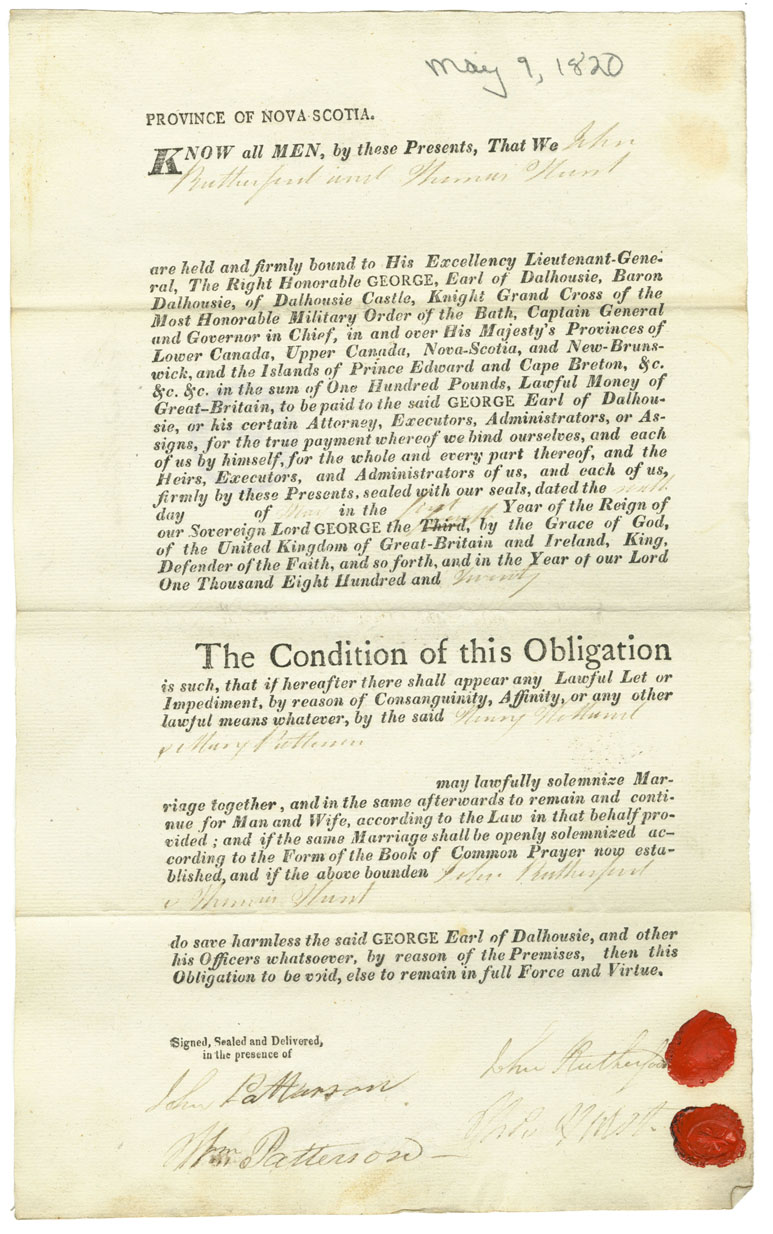 May 9, 1820
PROVINCE OF NOVA SCOTIA.
KNOW all MEN, by these Presents, That We John
Rutherford and Thomas Hunt
are held and firmly bound to His Excellency Lieutenant-Gene-
ral, The Right Honorable GEORGE, Earl of Dalhousie, Baron
Dalhousie, of Dalhousie Castle, Knight Grand Cross of the
Most Honorable Military Order of the Bath, Captain General
and Governor in Chief, in and over His Majesty's Provinces of
Lower Canada, Upper Canada, Nova-Scotia, and New-Bruns-
wick, and the Islands of Prince Edward and Cape Breton, &c.
&c. &c. in the sum of One Hundred Pounds, Lawful Money of
Great-Britain, to be paid to the said GEORGE Earl of Dalhou-
sie, or his certain Attorney, Executors, Administrators, or As-
signs, for the true payment whereof we bind ourselves, and each
of us by himself, for the whole and every part thereof, and the
Heirs, Executors, and Administrators of us, and each of us,
firmly by these Presents, sealed with our seals, dated the ninth
day of May in the first Year of the Reign of
our Sovereign Lord GEORGE the Third, by the Grace of God,
of the United Kingdom of Great-Britain and Ireland, King,
Defender of the Faith, and so forth, and in the Year of our Lord
One Thousand Eight Hundred and Twenty
The Condition of this Obligation
is such, that if hereafter there shall appear any Lawful Let or
Impediment, by reason of Consanguinity, Affinity, or any other
lawful means whatever, by the said Henry
& Mary Patterson
may lawfully solemnize Mar-
riage together, and in the same afterwards to remain and conti-
nue for Man and Wife, according to the Law in that behalf pro-
vided; and if the same Marriage shall be openly solemnized ac-
cording to the Form of the Book of Common Prayer now esta-
blished, and if the above bounden John Rutherford
& Thomas Hunt
do save harmless the said GEORGE Earl of Dalhousie, and other
his Officers whatsoever, by reason of the Premises, then this
Obligation to be void, else to remain in full Force and Virtue.
Signed, Sealed and Delivered,
in the presence of
John Rutherford
John Patterson
Wm Patterson